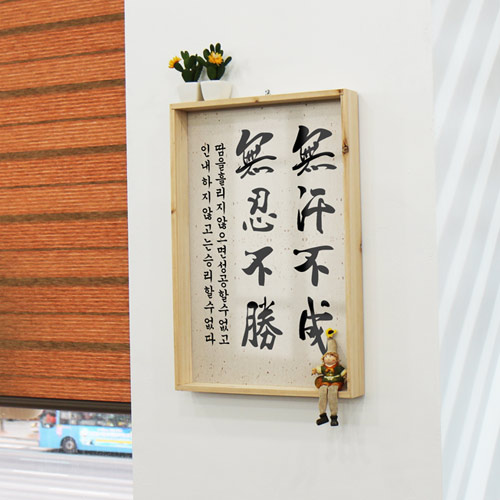 無汗不成
無忍不勝
땀을흘리지않으면성공할수없고
인내하지않고는승리할수없다